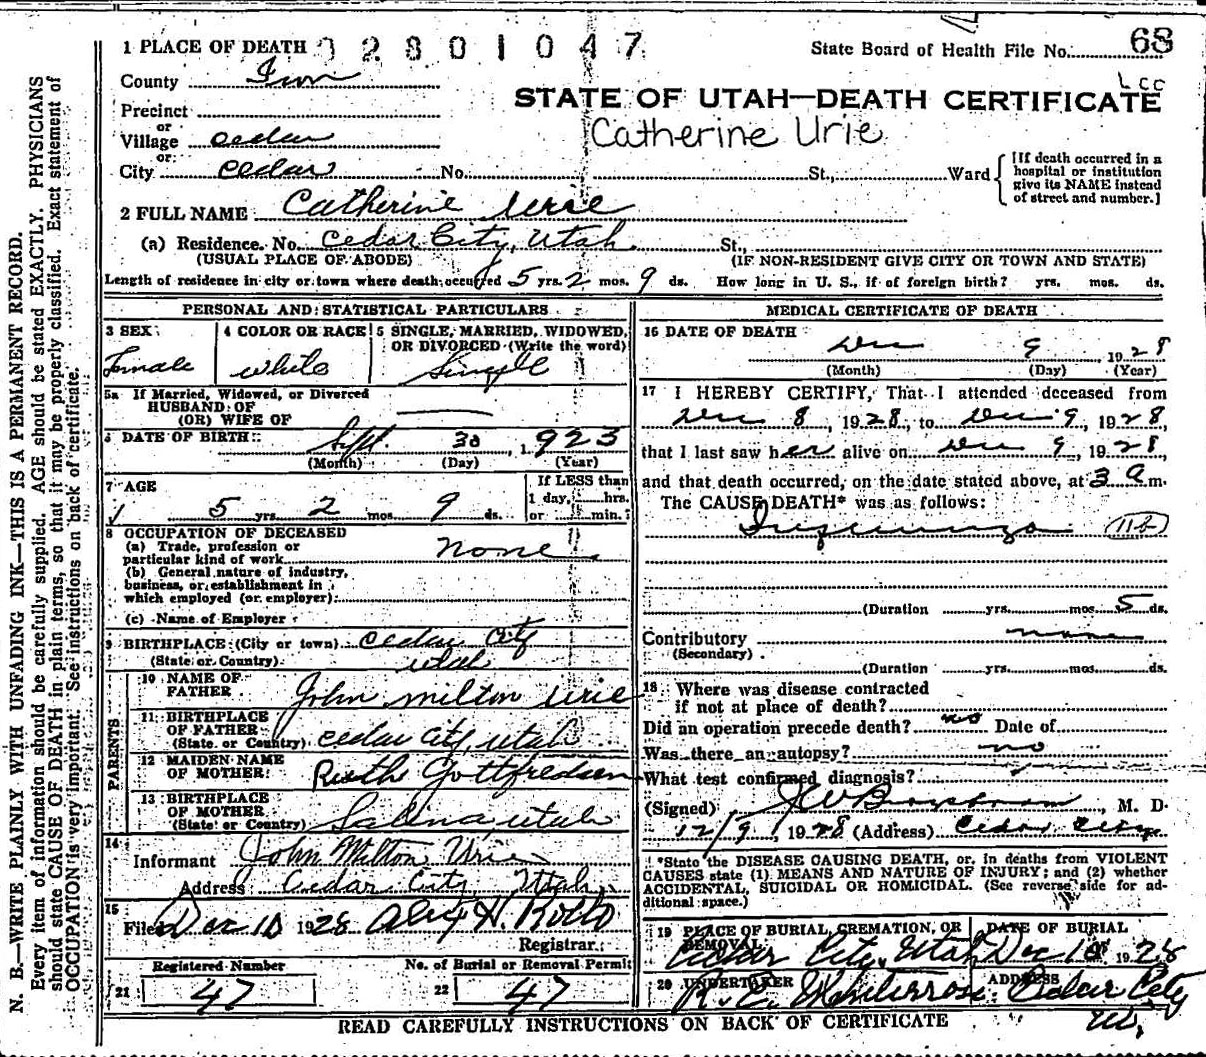 1 PLACE OF DEATH 02801047
State Board of Health File No. 68
County Iron
LCC
STATE OF UTAH—DEATH CERTIFICATE
Precinct
or
Village Cedar
Catherine Urie
or
City Cedar No. St., Ward
[If death occurred in a
hospital or institution
give its NAME instead
of street and number.]
2 FULL NAME Catherine Urie
(a) Residence. No. Cedar City, Utah St.,
(USUAL PLACE OF ABODE) (IF NON-RESIDENT GIVE CITY OR TOWN AND STATE)
Length of residence in city or town where death occurred 5 yrs. 2 mos. 9 ds. How long in U. S., if of foreign birth? yrs. mos. ds.
PERSONAL AND STATISTICAL PARTICULARS
3 SEX 4 COLOR OR RACE 5 SINGLE, MARRIED, WIDOWED,
OR DIVORCED (Write the word)
Female white Single
5a If Married, Widowed, or Divorced
HUSBAND OF
(OR) WIFE OF
6 DATE OF BIRTH Sept. 30, 1923
(Month) (Day) (Year)
7 AGE If LESS than
1 day, hrs.
5 yrs. 2 mos. 9 ds. or min.
8 OCCUPATION OF DECEASED
(a) Trade, profession or
particular kind of work none
(b) General nature of industry,
business, or establishment in
which employed (or employer)
(c) Name of Employer
9 BIRTHPLACE (City or town) Cedar City
(State or Country) Utah
PARENTS
10 NAME OF
FATHER John Milton Urie
11 BIRTHPLACE
OF FATHER
(State or Country) Cedar City, Utah
12 MAIDEN NAME
OF MOTHER Ruth Gottfredsen
13 BIRTHPLACE
OF MOTHER
(State or Country) Salina, Utah
14
Informant John Milton Urie
Address Cedar City, Utah,
15
Filed Dec 10 1928 Alex H. Rollo
Registrar.
Registered Number No. of Burial or Removal Permit
21 47 22 47
MEDICAL CERTIFICATE OF DEATH
16 DATE OF DEATH
Dec 9, 1928
(Month) (Day) (Year)
17 I HEREBY CERTIFY, That I attended deceased from
Dec 8, 1928, to Dec 9, 1928,
that I last saw her alive on Dec 9, 1928,
and that death occurred, on the date stated above, at 3 a m.
The CAUSE DEATH* was as follows:
Influenza 11b
(Duration yrs. mos. 5 ds.
Contributory none
(Secondary)
(Duration yrs. mos. ds.
18 Where was disease contracted
if not at place of death?
Did an operation precede death? no Date of
Was there an autopsy? no
What test confirmed diagnosis?
(Signed) , M. D.
12/9, 1928 (Address) Cedar City
*State the DISEASE CAUSING DEATH, or, in deaths from VIOLENT
CAUSES state (1) MEANS AND NATURE OF INJURY; and (2) whether
ACCIDENTAL, SUICIDAL OR HOMICIDAL. (See reverse side for ad-
ditional space.)
19 PLACE OF BURIAL, CREMATION, OR
REMOVAL DATE OF BURIAL
Cedar City, Utah Dec 10 1928
20 UNDERTAKER ADDRESS
Cedar City
Ut.
READ CAREFULLY INSTRUCTIONS ON BACK OF CERTIFICATE
N. B.—WRITE PLAINLY WITH UNFADING INK—THIS IS A PERMANENT RECORD.
Every item of information should be carefully supplied. AGE should be stated EXACTLY. PHYSICIANS
should state CAUSE OF DEATH in plain terms, so that it may be properly classified. Exact statement of
OCCUPATION is very important. See instructions on back of certificate.